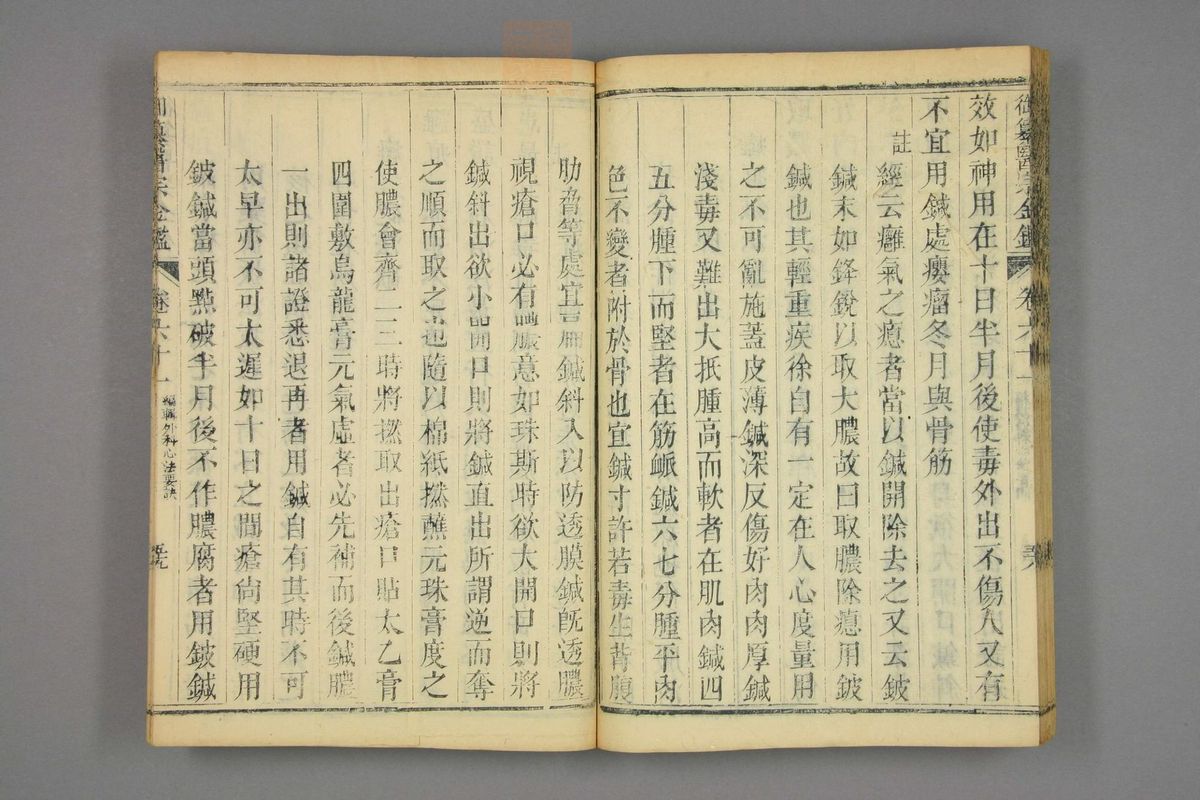 御纂醫宗金鑑
卷六十一
效如神用在十日半月後使毒外出不傷人又有
不宜用鍼處癭瘤冬月與骨筋
註
經云癰氣之瘜者當以鍼開除去之又云鈹
鍼末如鋒銳以取大膿故曰取膿除瘜用鈹
鍼也其輕重疾徐自有一定在人心度量用
之不可亂施蓋皮薄鍼深反傷好肉肉厚鍼
淺毒又難出大抵腫高而軟者在肌肉鍼四
五分腫下而堅者在筋脈鍼六七分腫平肉
色不變者附於骨也宜鍼寸許若毒生背腹
肋脅等處宜扁鍼斜入以防透膜鍼旣透膿
視瘡口必有膿意如珠斯時欲大開口則將
鍼斜出欲小開口則將鍼直出所謂逆而奪
之順而取之也隨以棉紙撚蘸元珠膏度之
使膿會齊二三時將撚取出瘡口貼太乙膏
四圍敷烏龍膏元氣虛者必先補而後鍼膿
一出則諸證悉退再者用鍼自有其時不可
太早亦不可太遲如十日之間瘡尙堅硬用
鈹鍼當頭點破半月後不作膿腐者用鈹鍼
御纂醫宗金鑑
卷六十一
編輯外科心法要訣